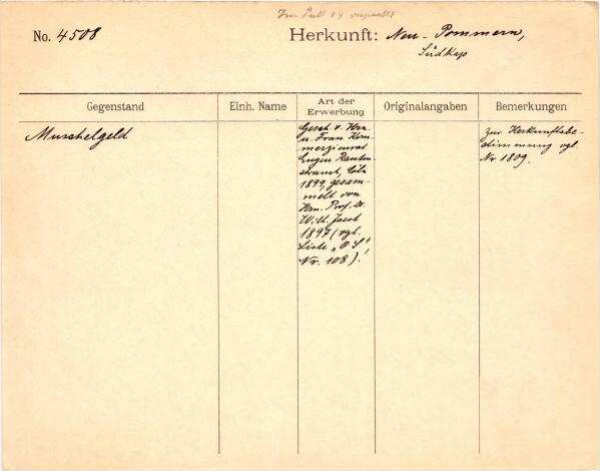 Im Pult 14
No. 4508 Herkunft: Neu-Pommern,
Südkap
Gegenstand Einh. Name Art der Erwerbung Originalangaben Bemerkungen
Muschelgeld
Gesch. v. Herr
u. Frau Kom-
merzienrat
Eugen Rauten-
strauch, Cöln
1899, gesam-
melt von
Hrn. Prof. Dr.
W. U. Joest
1897 (vgl.
Liste „O S"
Nr. 108).
Zur Herkunftsbe-
stimmung vgl.
Nr 1809.